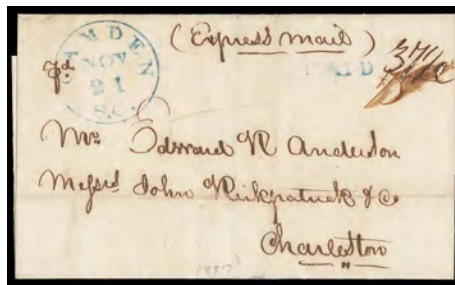 CAMDEN
NOV
21
S.C.
Pd.
(Express Mail)
PAID 37½
Mr. Edward R Anderson
Messrs John Kirkpatrick & Co
Charleston
1837